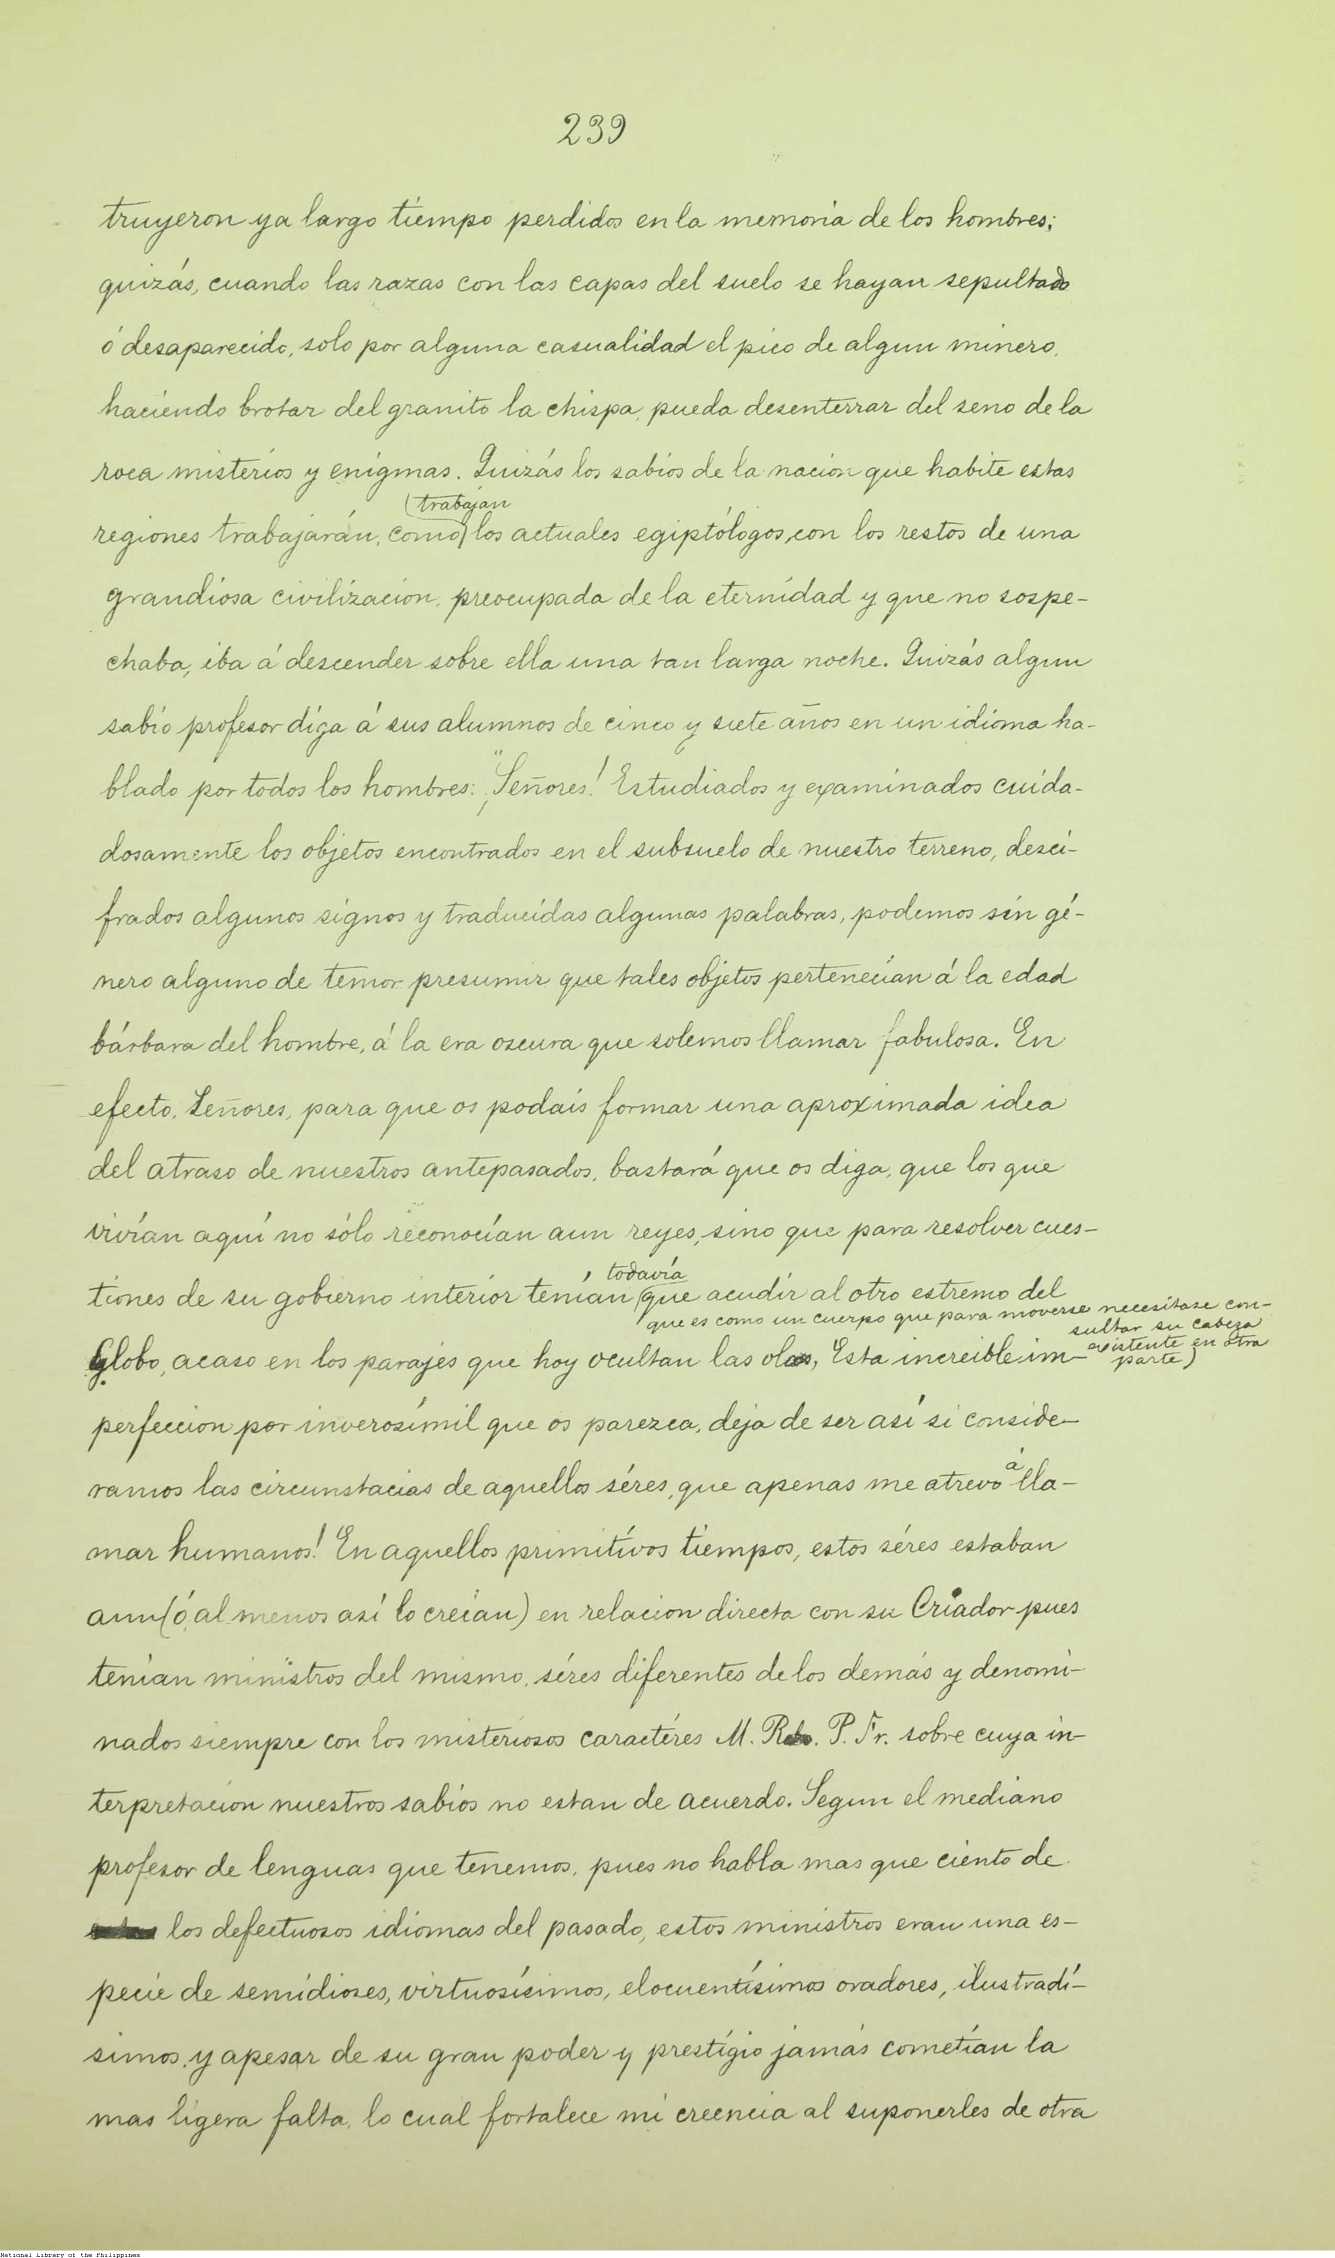 239
truyeron ya largo tiempo perdidos en la memoria de los hombres;
quizás, cuando las razas con las capas del suelo se hayan sepultado
ó desaparecido, solo por alguna casualidad el pico de algun minero,
haciendo brotar del granito la chispa, pueda desenterrar del seno de la
roca misterios y enigmas. Quizás los sabios de la nacion que habite estas
(trabajan
regiones trabajarán, como) los actuales egiptólogos, con los restos de una
grandiosa civilizacion, preocupada de la eternidad y que no sospe-
chaba, iba á descender sobre ella una tan larga noche. Quizás algun
sabio profesor diga á sus alumnos de cinco y siete años en un idioma ha-
blado por todos los hombres: "Señores! Estudiados y examinados cuida-
dosamente los objetos encontrados en el subsuelo de nuestro terreno, desci-
frados algunos signos y traducidas algunas palabras, podemos sin gé-
nero alguno de temor presumir que tales objetos pertenecian á la edad
bárbara del hombre, á la era oscura que solemos llamar fabulosa. En
efecto, Señores, para que os podais formar una aproximada idea
del atraso de nuestros antepasados, bastará que os diga, que los que
vivían aquí no sólo reconocían aun reyes, sino que para resolver cues-
todavía
tiones de su gobierno interior tenían (que acudir al otro estremo del
que es como un cuerpo que para moverse necesitase con-
sultar su cabeza
existente en otra
parte)
Globo, acaso en los parajes que hoy ocultan las olas, Esta increible im-
perfeccion por inverosímil que os parezca, deja de ser así si conside-
á
ramos las circunstacias de aquellos séres, que apenas me atrevo lla-
mar humanos! En aquellos primitívos tiempos, estos séres estaban
aun (ó, al menos así lo creían) en relacion directa con su Criador pues
tenían ministros del mismo, séres diferentes de los demás y denomi-
nados siempre con los misteriosos caractéres M. R. P. Fr. sobre cuya in-
terpretacion nuestros sabios no estan de acuerdo. Segun el mediano
profesor de lenguas que tenemos, pues no habla mas que ciento de
los defectuosos idiomas del pasado, estos ministros eran una es-
pecie de semidioses, virtuosísimos, elocuentísimos oradores, ilustradí-
simos, y apesar de su gran poder y prestígio jamás cometían la
mas ligera falta, lo cual fortalece mi creencia al suponerles de otra
National Library of the Philippines